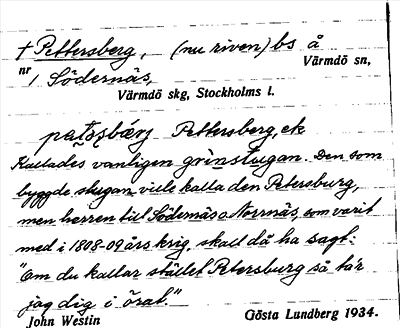 † Pettersberg, (nu riven) bs å
nr 1 Södernäs,
Värmdö sn,
Värmdö skg, Stockholms l.
Pettersberg, ek
Kallades vanligen grinstugan. Den som
byggde stugan ville kalla den Petersburg,
men herren till Södernäs o. Norrnäs, som varit
med i 1808-09 års krig, skall då ha sagt:
"Om du kallar stället Petersburg så tar
jag dig i örat."
John Westin
Gösta Lundberg 1934.